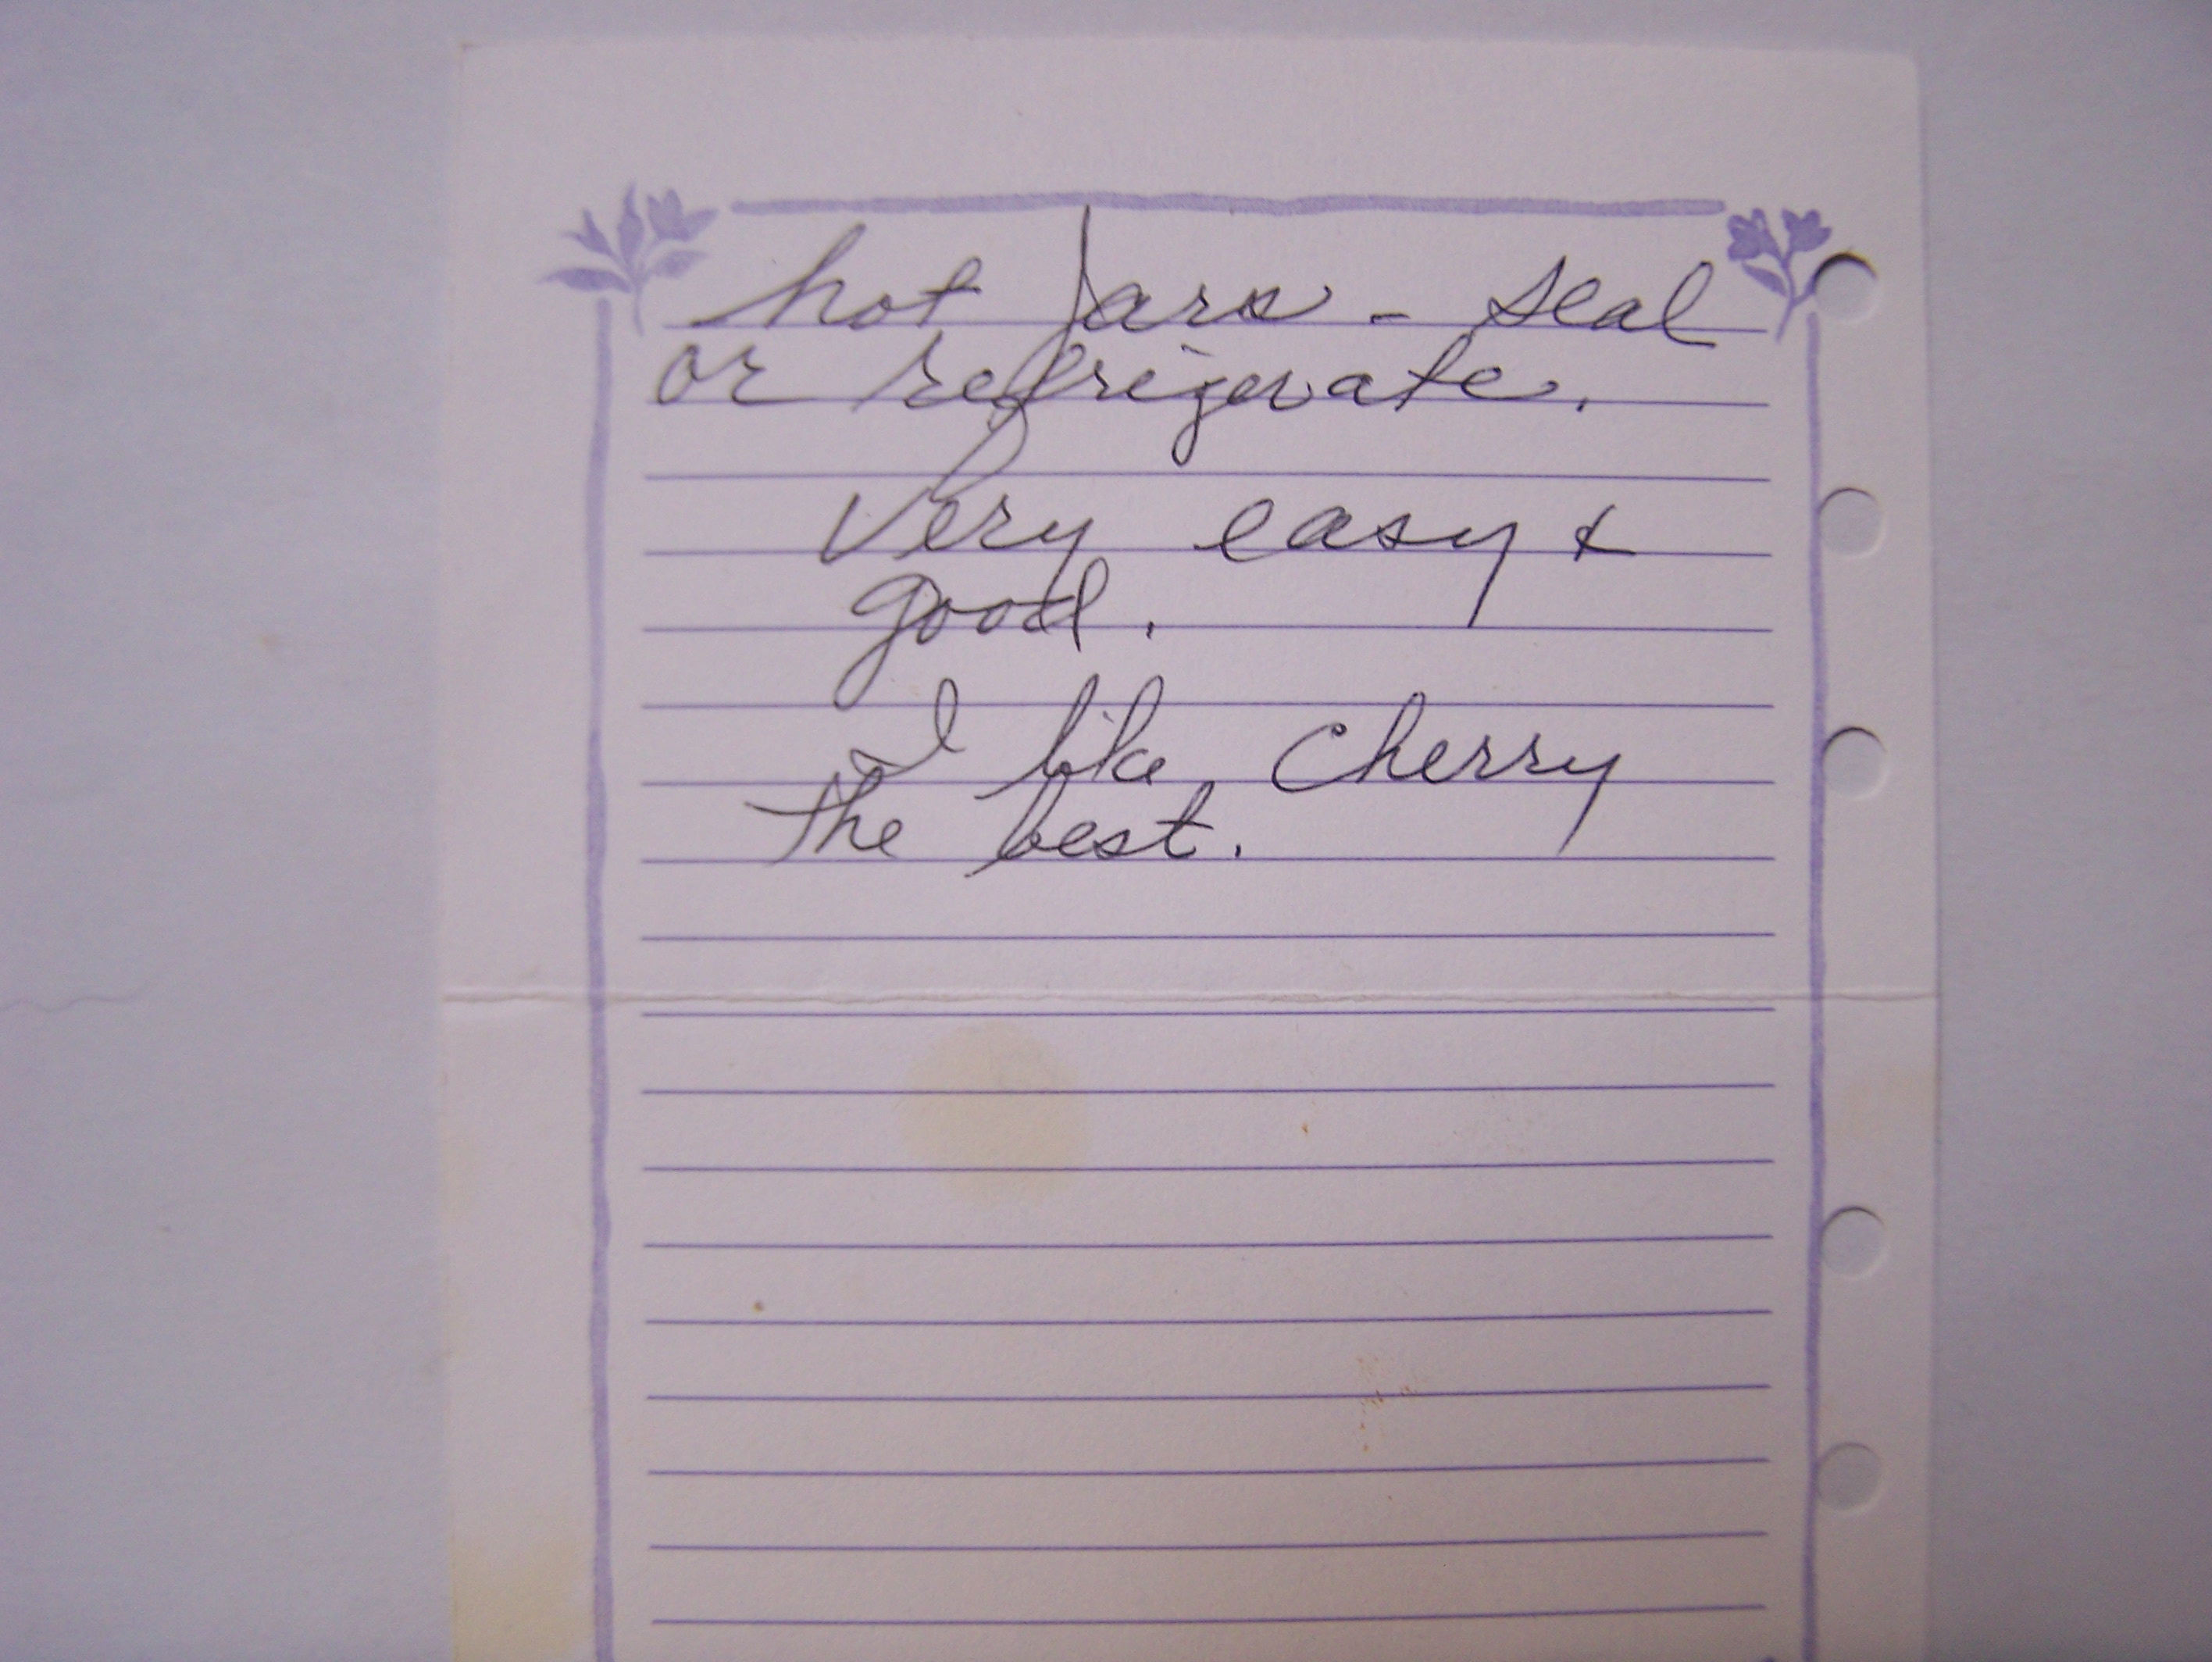 hot Jars - seal
or refrigerate.
Very easy &
good.
I like cherry
the best.